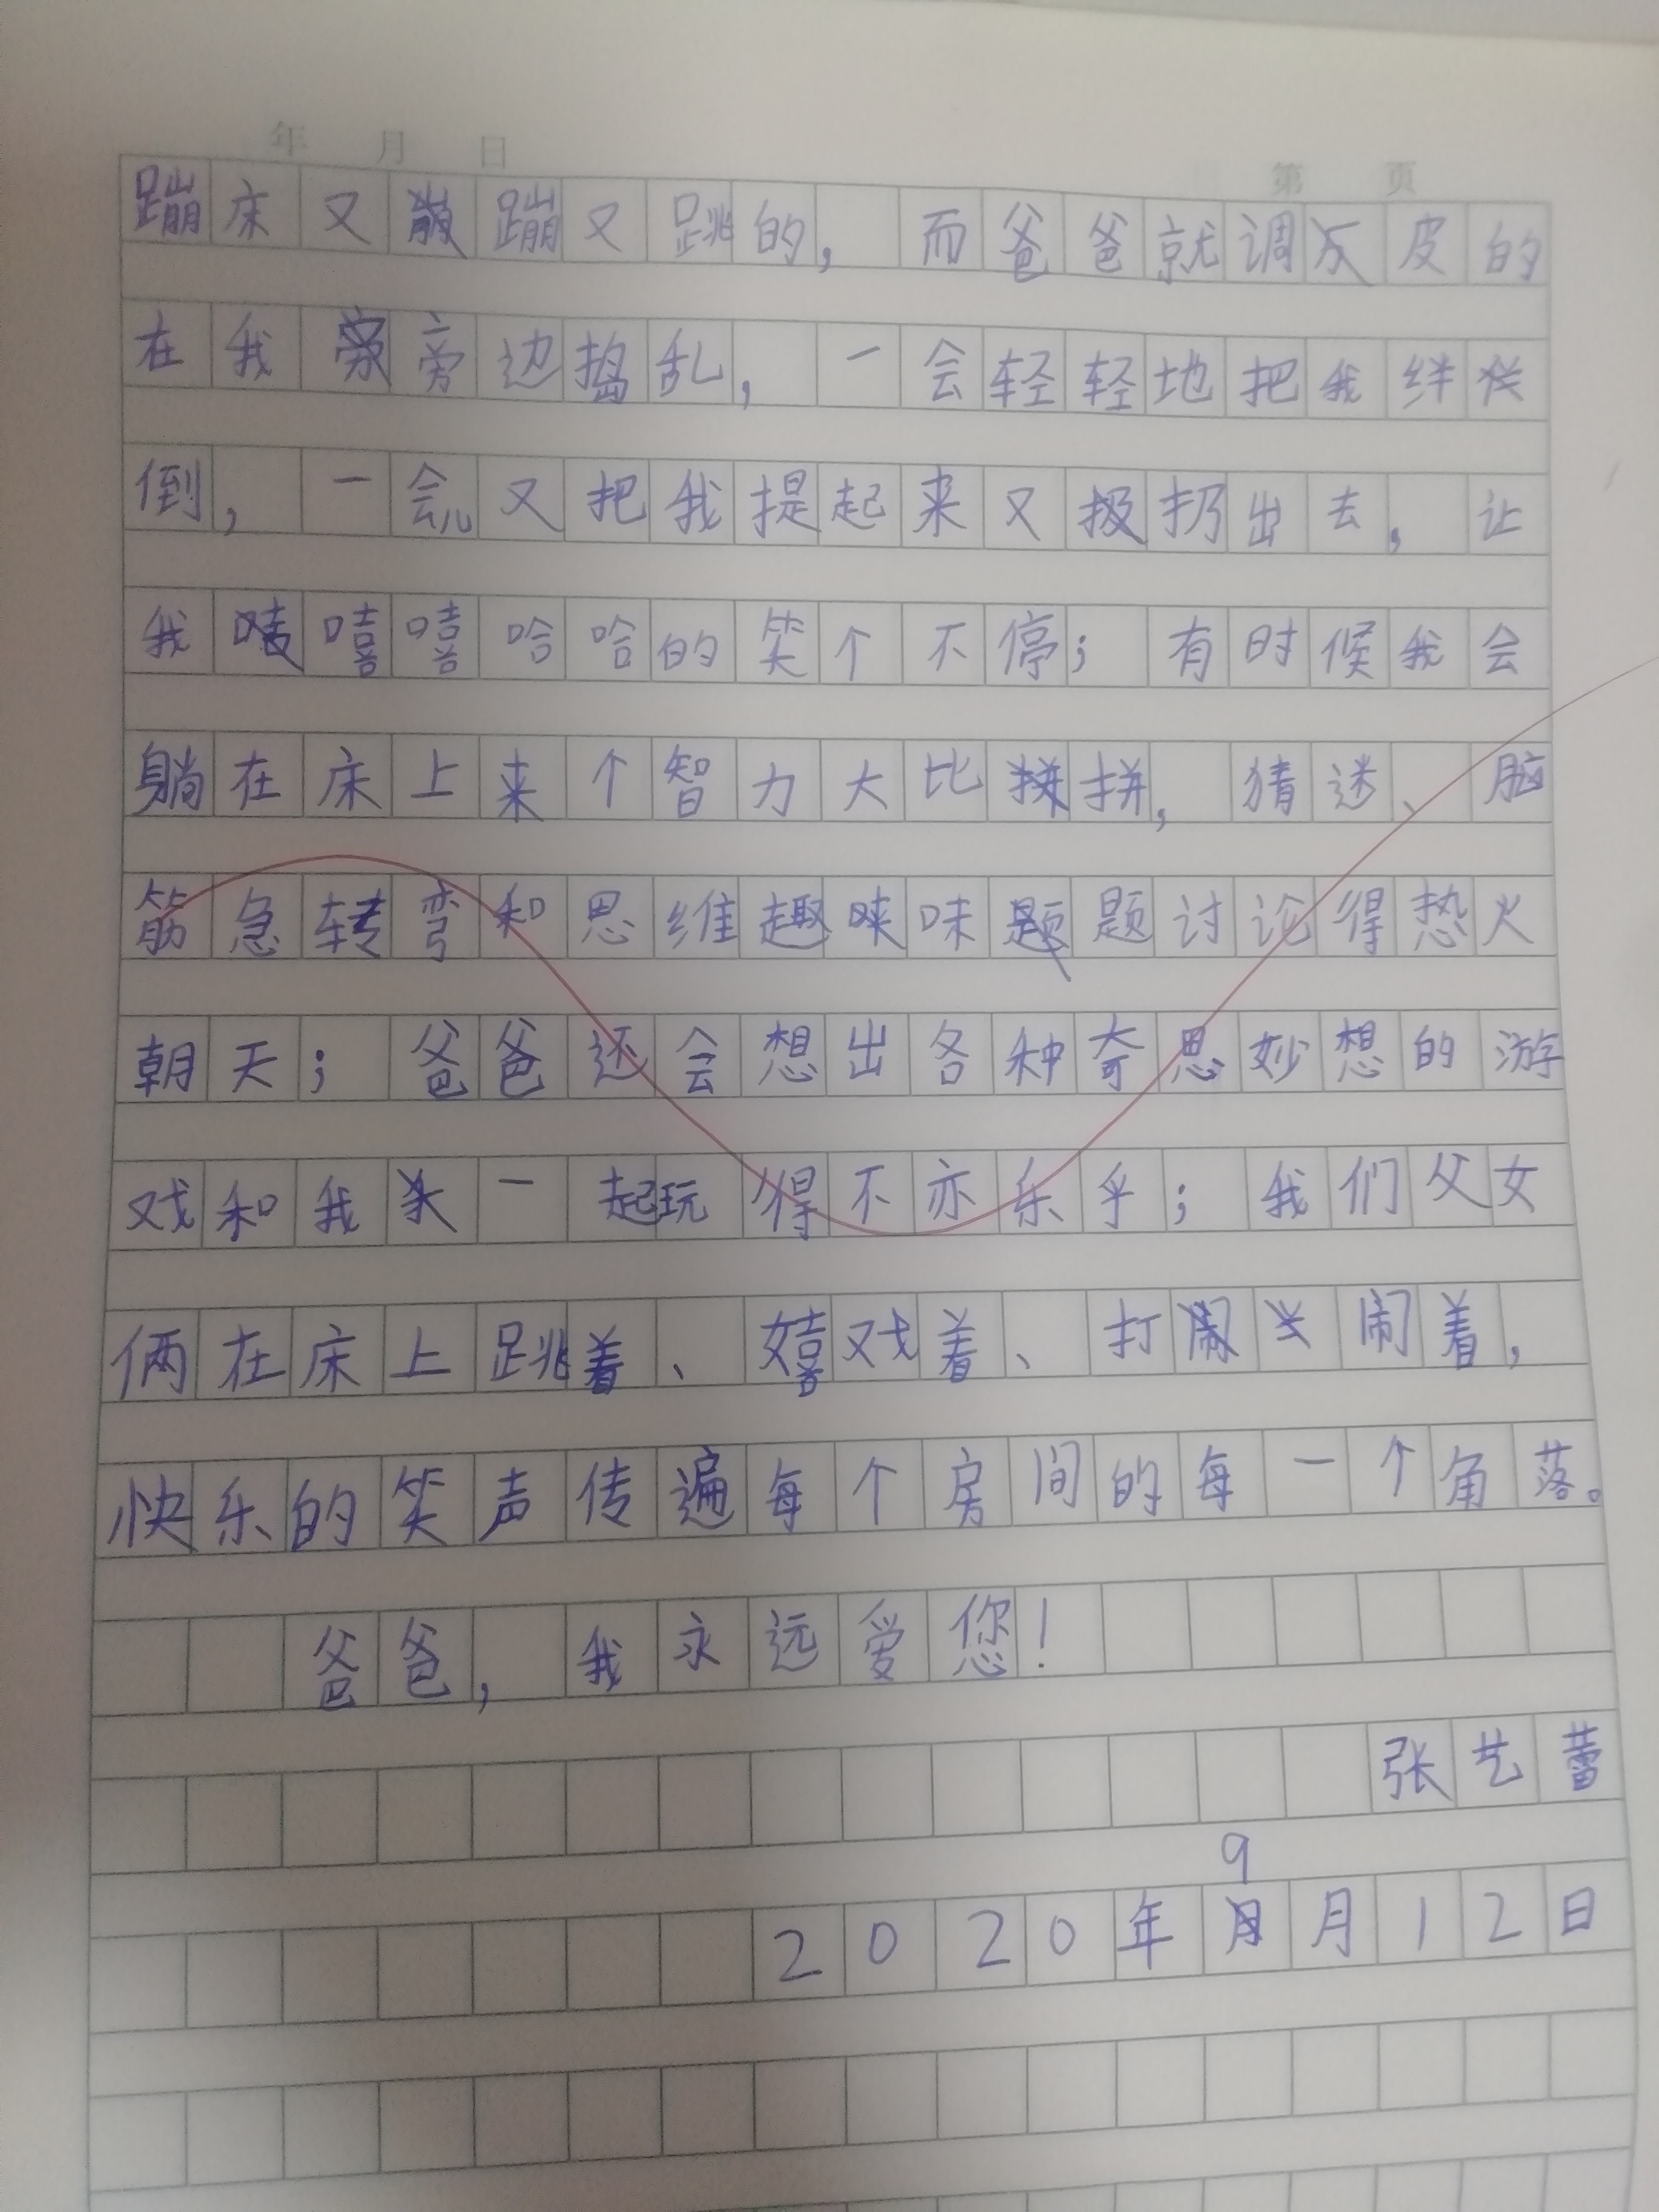 年 月 日
第 页
蹦床又蹦又跳的，而爸爸就调皮的
在我旁边捣乱，一会轻轻地把我绊
倒，一会儿又把我提起来又扔出去，让
我嘻嘻哈哈的笑个不停；有时候我会
躺在床上来个智力大比拼，猜迷、脑
筋急转弯和思维趣味题讨论得热火
朝天；爸爸还会想出各种奇思妙想的游
戏和我一起玩得不亦乐乎；我们父女
俩在床上跳着、嬉戏着、打闹着，
快乐的笑声传遍每个房间的每一个角落。
爸爸，我永远爱您！
张艺蕾
2020年9月12日